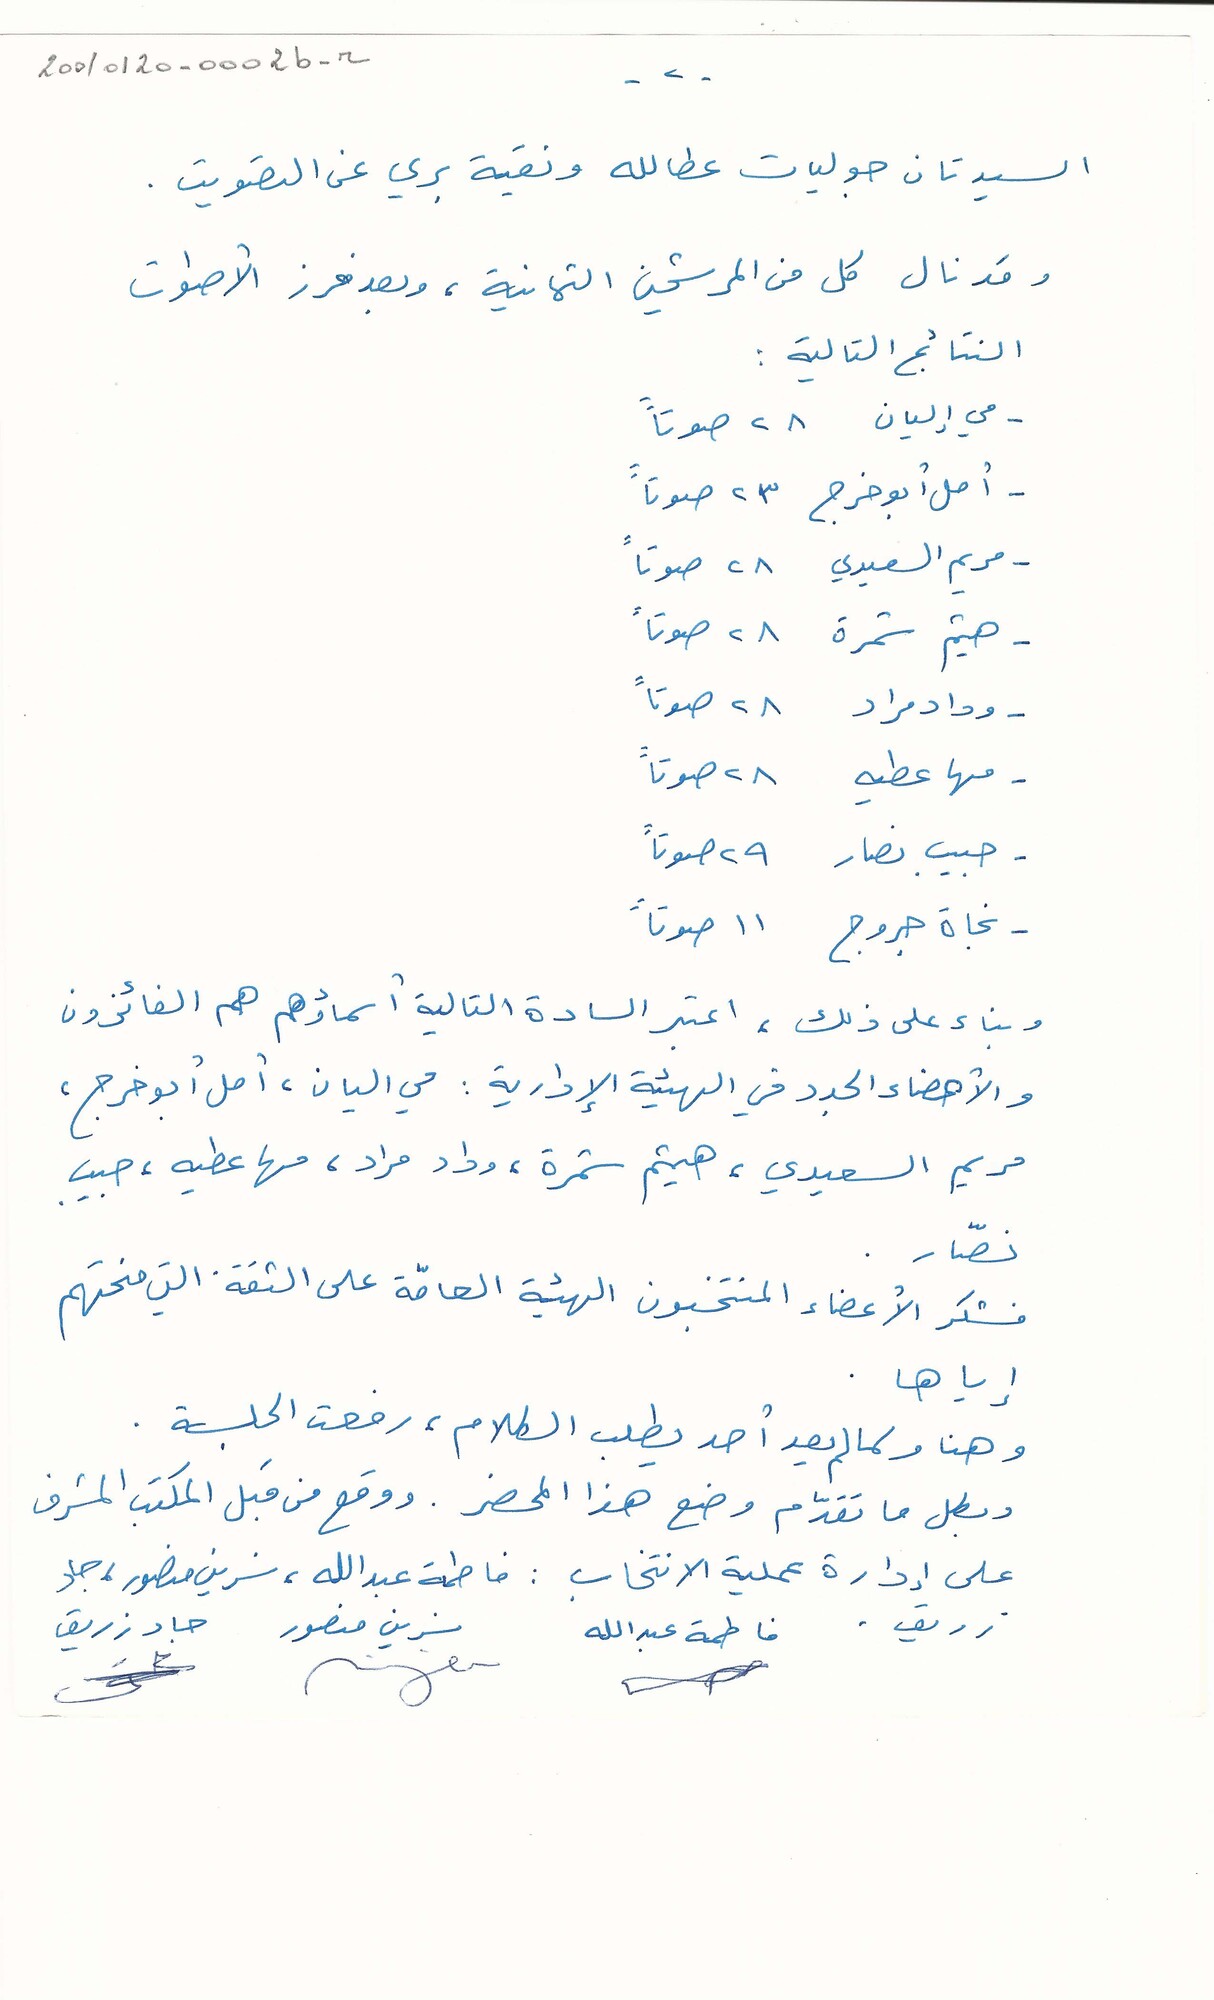 20010120-00026-r
- ٢ -
السيدتان جوليات عطالله ونقية بري عن التصويت .
وقد نال كل من المرشحين الثمانية ، وبعد فرز الأصوات
النتائج التالية :
- مي إليان ٢٨ صوتاً
- أمل أبو خرج ٢٣ صوتاً
- مريم السعيدي ٢٨ صوتاً
- هيثم شمرة ٢٨ صوتاً
- وداد مراد ٢٨ صوتاً
- مها عطيه ٢٨ صوتاً
- حبيب نصار ٢٩ صوتاً
- نجاة جروج ١١ صوتاً
وبناء على ذلك ، اعتبر السادة التالية أسماؤهم هم الفائزون
والأعضاء الجدد في الهيئة الإدارية : مي اليان ، أمل أبو خرج ،
مريم السعيدي ، هيثم شمرة ، وداد مراد ، مها عطيه ، حبيب
نصّار .
فشكر الأعضاء المنتخبون الهيئة العامّة على الثقة التي منحتهم
إياها .
وهنا وكما لم يعد أحد يطلب الكلام ، رفعت الجلسة .
وبكل ما تقدّم وضع هذا المحضر . ووقع من قبل المكتب المشرف
على إدارة عملية الانتخاب : فاطمة عبدالله ، نسرين منصور ، جاد
زريق .
فاطمة عبدالله نسرين منصور جاد زريق